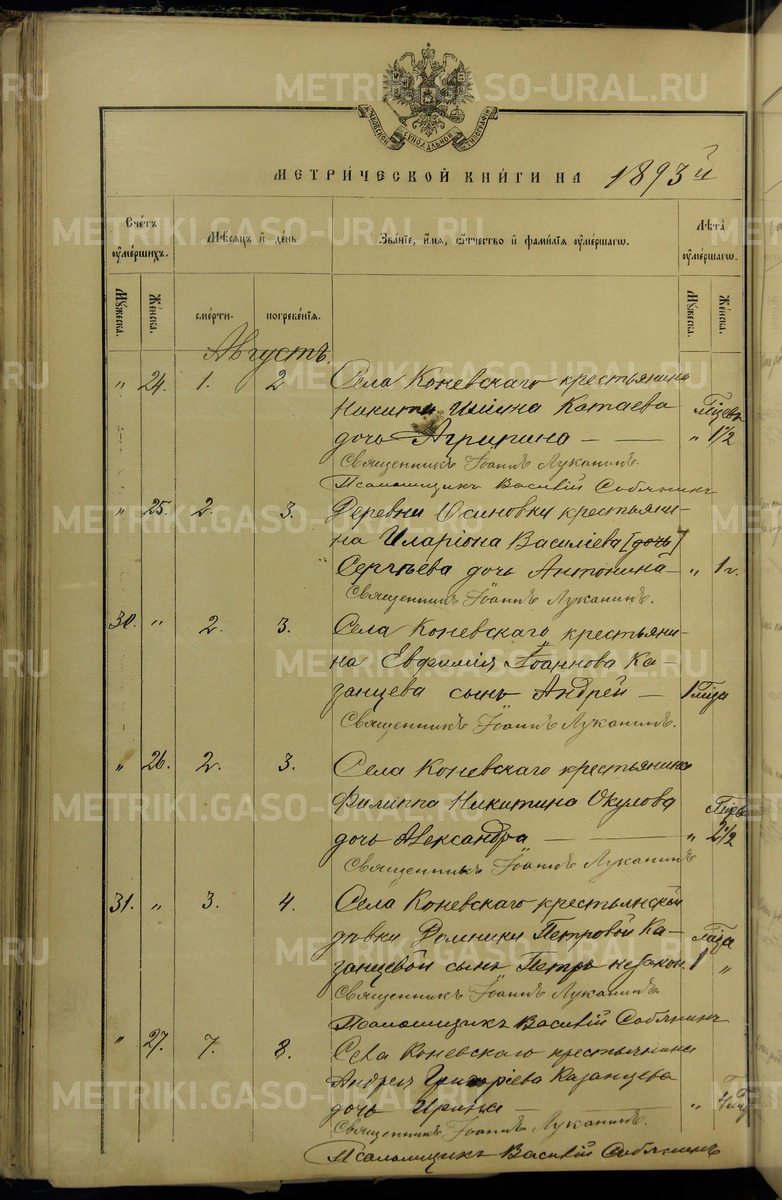 МОСКОВСКОЙ СУНОДАЛЬНОЙ ТИПОГРАФІИ
МЕТРИЧЕСКОЙ КНИГИ НА 1893й
Счетъ умершихъ.
Мѣсяцъ и день
Званіе, имя, отчество и фамилія умершаго.
Лѣта умершаго.
Мужеска.
Женска.
смерти.
погребенія.
Мужеска.
Женска.
Августъ.
" 24. 1. 2 Села Коневскаго крестьянина
Никиты Катаева
дочь Агрипина — — " 1½
Священникъ Іоаннъ Луканинъ.
Псаломщикъ Василій Собянинъ
" 25. 2. 3. Деревни Осиновки крестьяни-
на Иларіона Василіева [дочь]
Сергѣева дочь Антонина — " 1 г.
Священникъ Іоаннъ Луканинъ.
30. " 2. 3. Села Коневскаго крестьяни-
на Евфимія Іоаннова Ка-
занцева сынъ Андрей — 1 года
Священникъ Іоаннъ Луканинъ.
" 26. 2. 3. Села Коневскаго крестьянина
Филиппа Никитина Окулова
дочь Александра — — " 2½
Священникъ Іоаннъ Луканинъ
31. " 3. 4. Села Коневскаго крестьянской
дѣвки Домники Петровой Ка-
занцевой сынъ Петръ незакон. 1 года "
Священникъ Іоаннъ Луканинъ
Псаломщикъ Василій Собянинъ
" 27. 7. 8. Села Коневскаго крестьянина
Андрея Григоріева Казанцева
дочь — "
Священникъ Іоаннъ Луканинъ.
Псаломщикъ Василій Собянинъ
METRIKI.GASO-URAL.RU